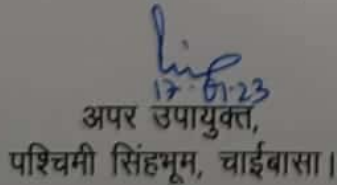 17.01.23
अपर उपायुक्त,
पश्चिमी सिंहभूम, चाईबासा।